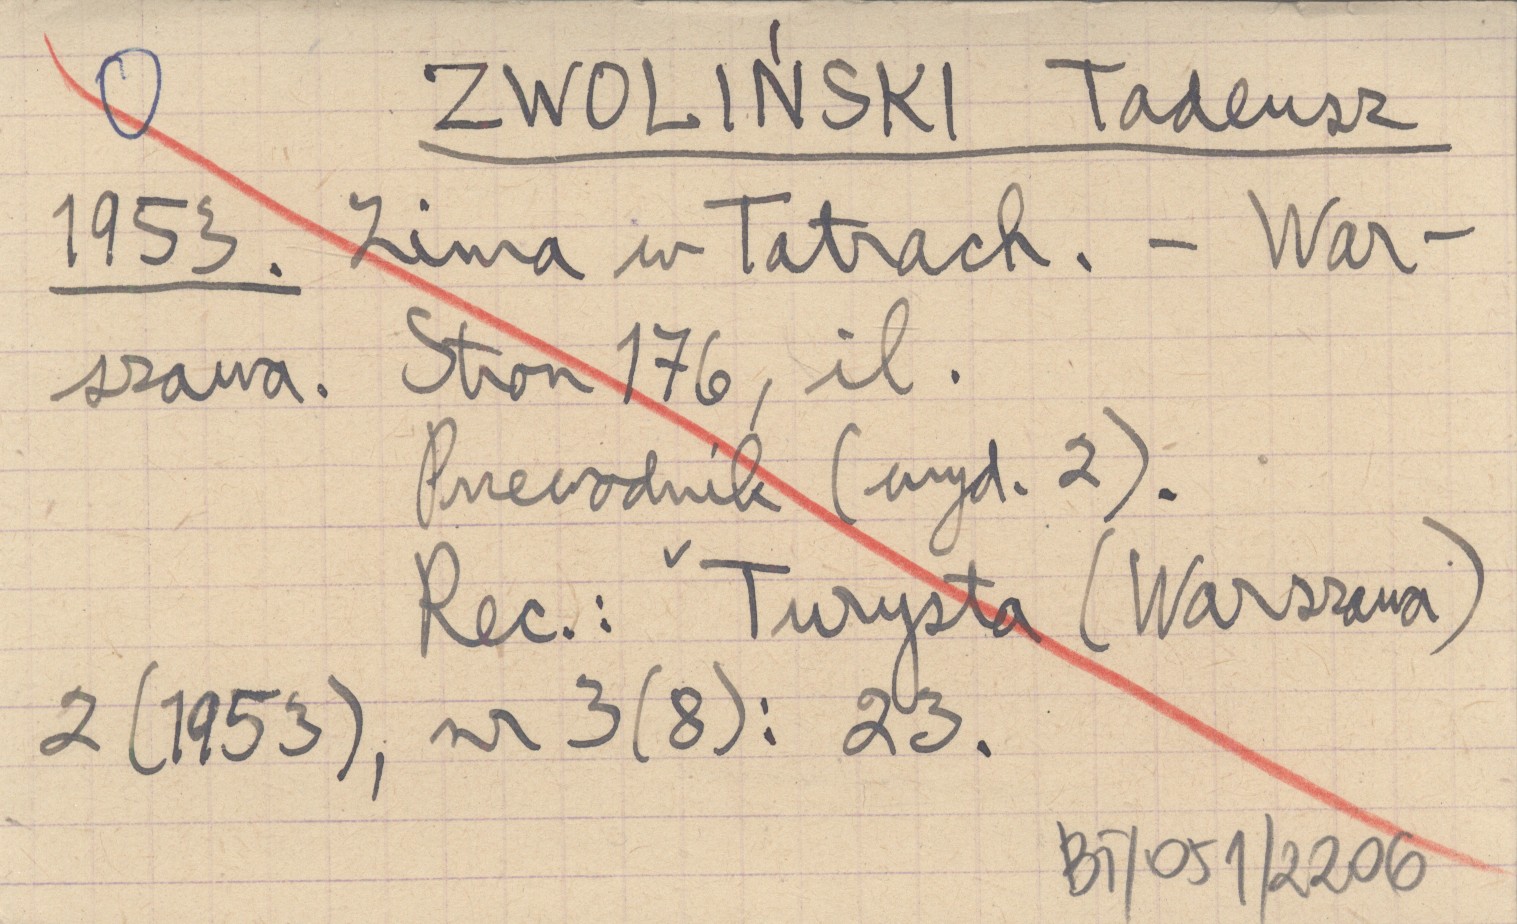 ZWOLIŃSKI Tadeusz
1953. Zima w Tatrach. - War-
szawa. Stron 176, il.
Przewodnik (wyd. 2).
Rec.: Turysta (Warszawa)
2 (1953), nr 3(8): 23.
BT/051/2206